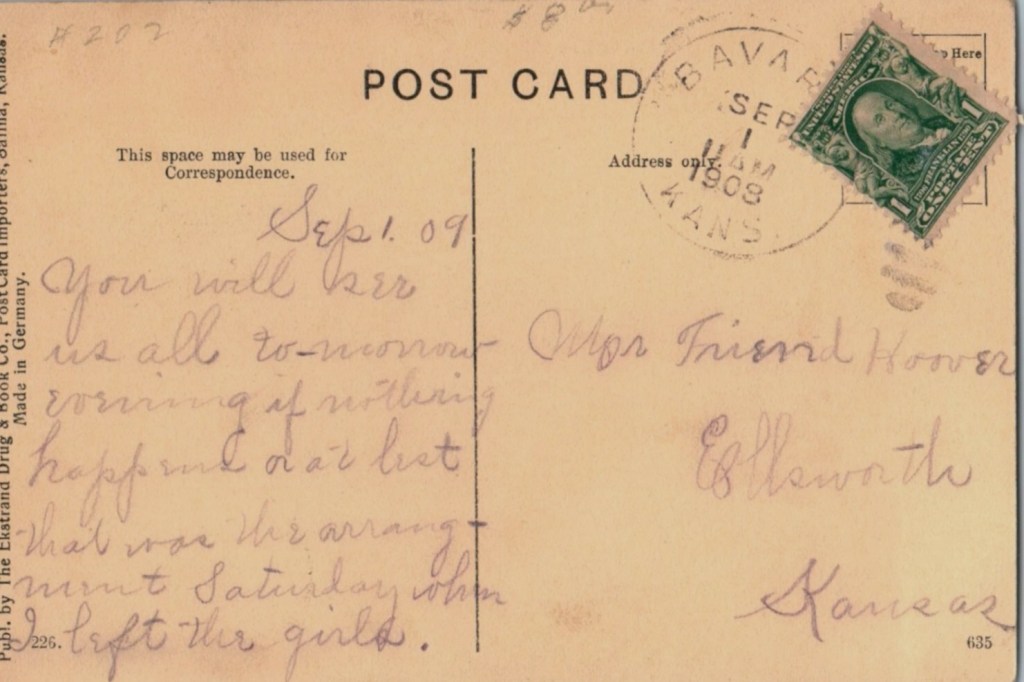 #202
$8
POST CARD
BAVAR
SEP
1
11 AM
1908
KANS.
p Here
UNITED STATES OF AMERICA
1 1
ONE CENT
This space may be used for
Correspondence.
Address only.
Sep 1. 09
You will see
us all to-morrow
evening if nothing
happens or at lest
that was the arrang-
ment Saturday when
I left the girls.
Friend Hoover
Ellsworth
Kansas
Publ. by The Ekstrand Drug & Book Co., Post Card Importers, Salina, Kansas.
Made in Germany.
226.
635